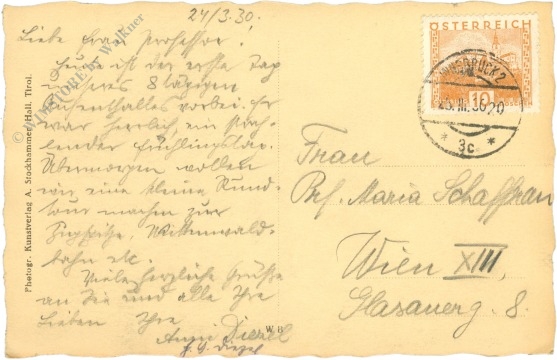 24/3.30.
Liebe Frau Professor!
Heute ist der erste Tag
unseres 8 tägigen
Aufenthaltes vorbei. Er
war herrlich, ein strah-
lender Frühlingstag.
Übermorgen wollen
wir eine kleine Rund-
tour machen zur
Zugspitze, Mittenwald-
bahn etc.
Viele herzliche Grüsse
an Sie und alle Ihre
Lieben Ihre
Anni Diezel
Photogr. Kunstverlag A. Stockhammer, Hall, Tirol.
W B
ÖSTERREICH
10
INNSBRUCK 2
25.III.30 20
* 3c. *
Frau
Prof. Maria Schaffran
Wien XIII
Glasauerg. 8.